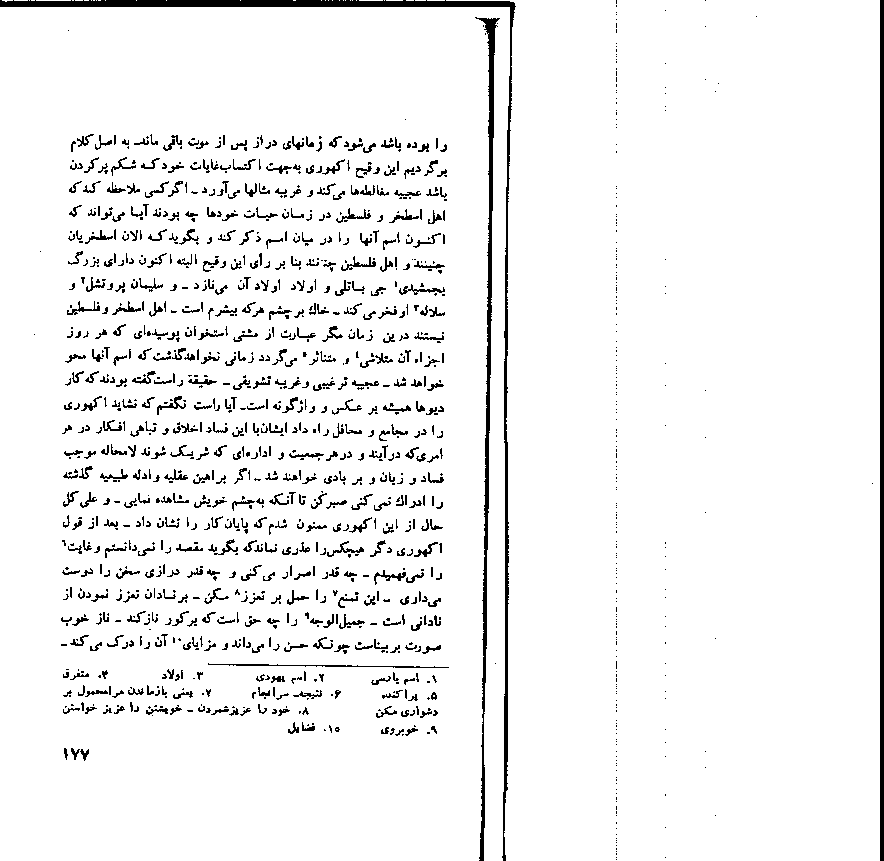 را بوده باشد می‌شود که زمانهای دراز پس از موت باقی ماند ـ به اصل کلام
برگردیم این وقیح اکهوری به‌جهت اکتساب غایات خود که شکم پر کردن
باشد عجیبه مغالطه‌ها می‌کند و غریبه مثالها می‌آورد ـ اگر کسی ملاحظه کند که
اهل اسطخر و فلسطین در زمان حیات خودها چه بودند آیا می‌تواند که
اکنون اسم آنها را در میان امم ذکر کند و بگوید که الان اسطخریان
چنینند و اهل فلسطین چنانند بنا بر رأی این وقیح البته اکنون دارای بزرگ
بجمشیدی۱ جی باتلی و اولاد اولاد آن می‌نازد ـ و سلیمان پروتشل۲ و
سلاله۳ او فخر می‌کند ـ خاک بر چشم هرکه بیشرم است ـ اهل اسطخر و فلسطین
نیستند درین زمان مگر عبارت از مشتی استخوان پوسیده‌ای که هر روز
اجزاء آن متلاشی۴ و متناثر۵ می‌گردد زمانی نخواهد گذشت که اسم آنها محو
خواهد شد ـ عجیبه ترغیبی و غریبه تشویقی ـ حقیقة راست گفته بودند که کار
دیوها همیشه بر عکس و واژگونه است ـ آیا راست نگفتم که نشاید اکهوری
را در مجامع و محافل راه داد ایشان با این فساد اخلاق و تباهی افکار در هر
امری که درآیند و در هر جمعیت و اداره‌ای که شریک شوند لامحاله موجب
فساد و زیان و بر بادی خواهند شد ـ اگر براهین عقلیه و ادله طبیعیه گذشته
را ادراک نمی‌کنی صبر کن تا آنکه به‌چشم خویش مشاهده نمایی ـ و علی کل
حال از این اکهوری ممنون شدم که پایان کار را نشان داد ـ بعد از قول
اکهوری دگر هیچکس را عذری نماند که بگوید مقصد را نمی‌دانستم و غایت۶
را نمی‌فهمیدم ـ چه قدر اصرار می‌کنی و چه قدر درازی سخن را دوست
می‌داری ـ این تمنع۷ را حمل بر تعزز۸ مکن ـ بر نادان تعزز نمودن از
نادانی است ـ جمیل‌الوجه۹ را چه حق است که بر کور ناز کند ـ ناز خوب
صورت بر بیناست چونکه حسن را می‌داند و مزایای۱۰ آن را درک می‌کند ـ
۱. اسم پارسی ۲. اسم یهودی ۳. اولاد ۴. متفرق
۵. پراکنده ۶. نتیجه ـ سرانجام ۷. یعنی بازماندن مرا محمول بر
دشواری مکن ۸. خود را عزیز شمردن ـ خویشتن را عزیز خواستن
۹. خوبروی ۱۰. فضایل
۱۷۷